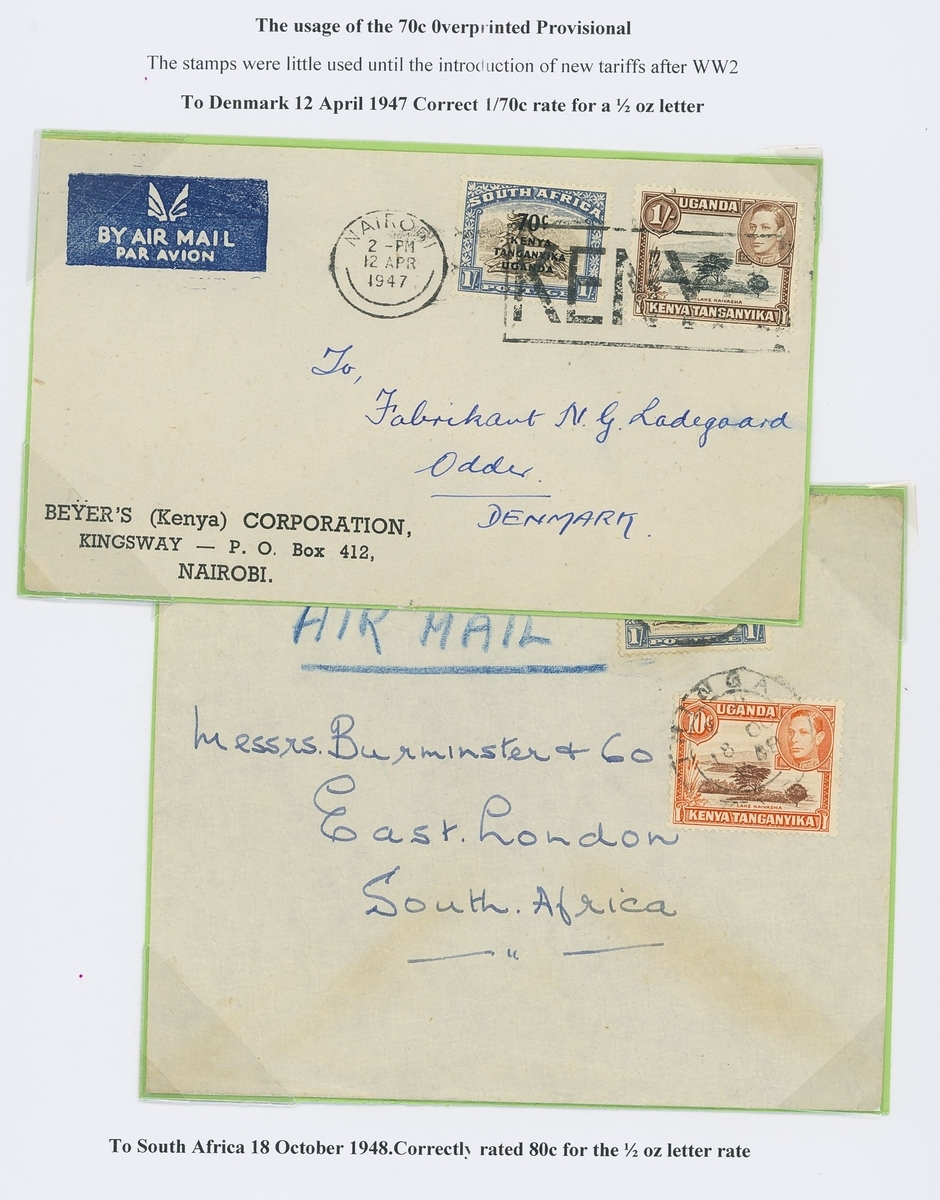 The usage of the 70c 0verprinted Provisional
The stamps were little used until the introduction of new tariffs after WW2
To Denmark 12 April 1947 Correct 1/70c rate for a ½ oz letter
BY AIR MAIL
PAR AVION
NAIROBI
2 -PM
12 APR
1947
SOUTH AFRICA
70c
KENYA
TANGANYIKA
UGANDA
1/- POSTAGE 1/-
UGANDA
1/-
LAKE NAIVASHA
KENYA TANGANYIKA
KENYA
To,
Fabrikant N. G. Ladegaard
Odder.
DENMARK.
BEYER'S (Kenya) CORPORATION,
KINGSWAY — P. O. Box 412,
NAIROBI.
AIR MAIL
1/- POSTAGE 1/-
18 OC
UGANDA
10c
LAKE NAIVASHA
KENYA TANGANYIKA
Messrs. Burminster & Co
East. London
South. Africa
To South Africa 18 October 1948.Correctly rated 80c for the ½ oz letter rate